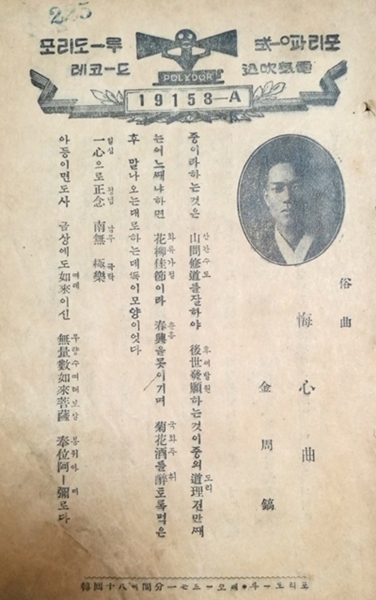 포리도ㅡ루
레코ㅡ드
POLYDOR
込吹氣電
19158-A
俗曲
悔心曲
金周鎬
중이라하는것은 山間修道를잘하야 後世發願하는것이중의道理건만째
는어느째냐하면 花柳佳節이라 春興을못이기며 菊花酒를醉토록먹은
후 말나오는대로하는데 이모양이엇다
一心으로正念 南無 極樂
아등이면도사 금상에도如來이신 無量數如來菩薩 奉位阿ㅡ彌로다